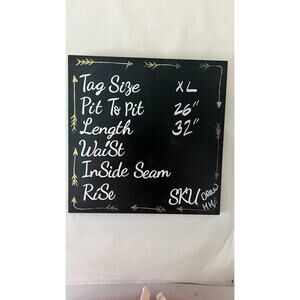 Tag Size XL
Pit To Pit 26"
Length 32"
WaiSt
InSide Seam
RiSe SKU